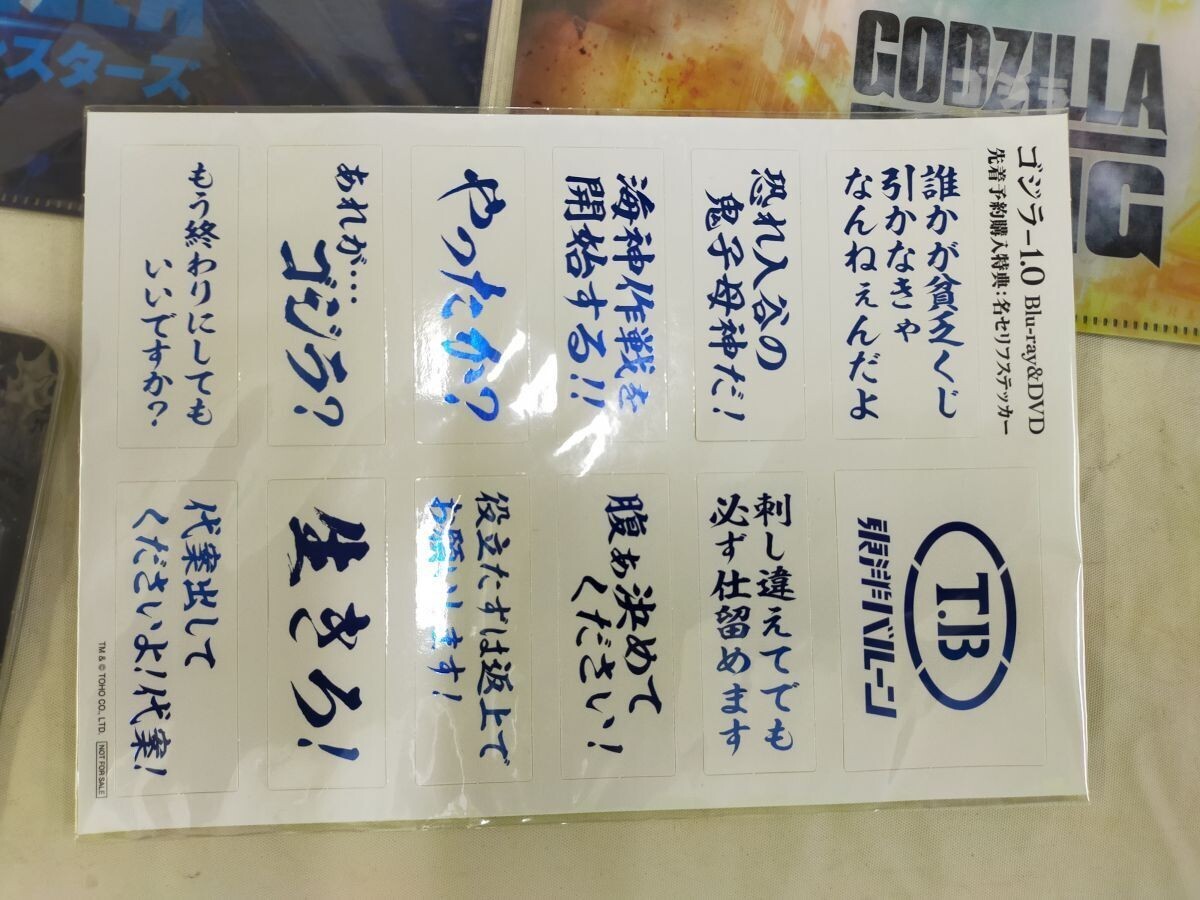 スターズ
GODZILLA
ゴジラ-1.0 Blu-ray&DVD
先着予約購入特典:名セリフステッカー
誰かが貧乏くじ
引かなきゃ
なんねぇんだよ
恐れ入谷の
鬼子母神だ!
海神作戦を
開始する!!
やったか?
あれが…
ゴジラ?
もう終わりにしても
いいですか?
T.B
東洋バルーン
刺し違えてでも
必ず仕留めます
腹ぁ決めて
ください!
役立たずは返上で
お願いします!
生きろ!
代案出して
くださいよ!代案!
TM & © TOHO CO., LTD.
NOT FOR SALE